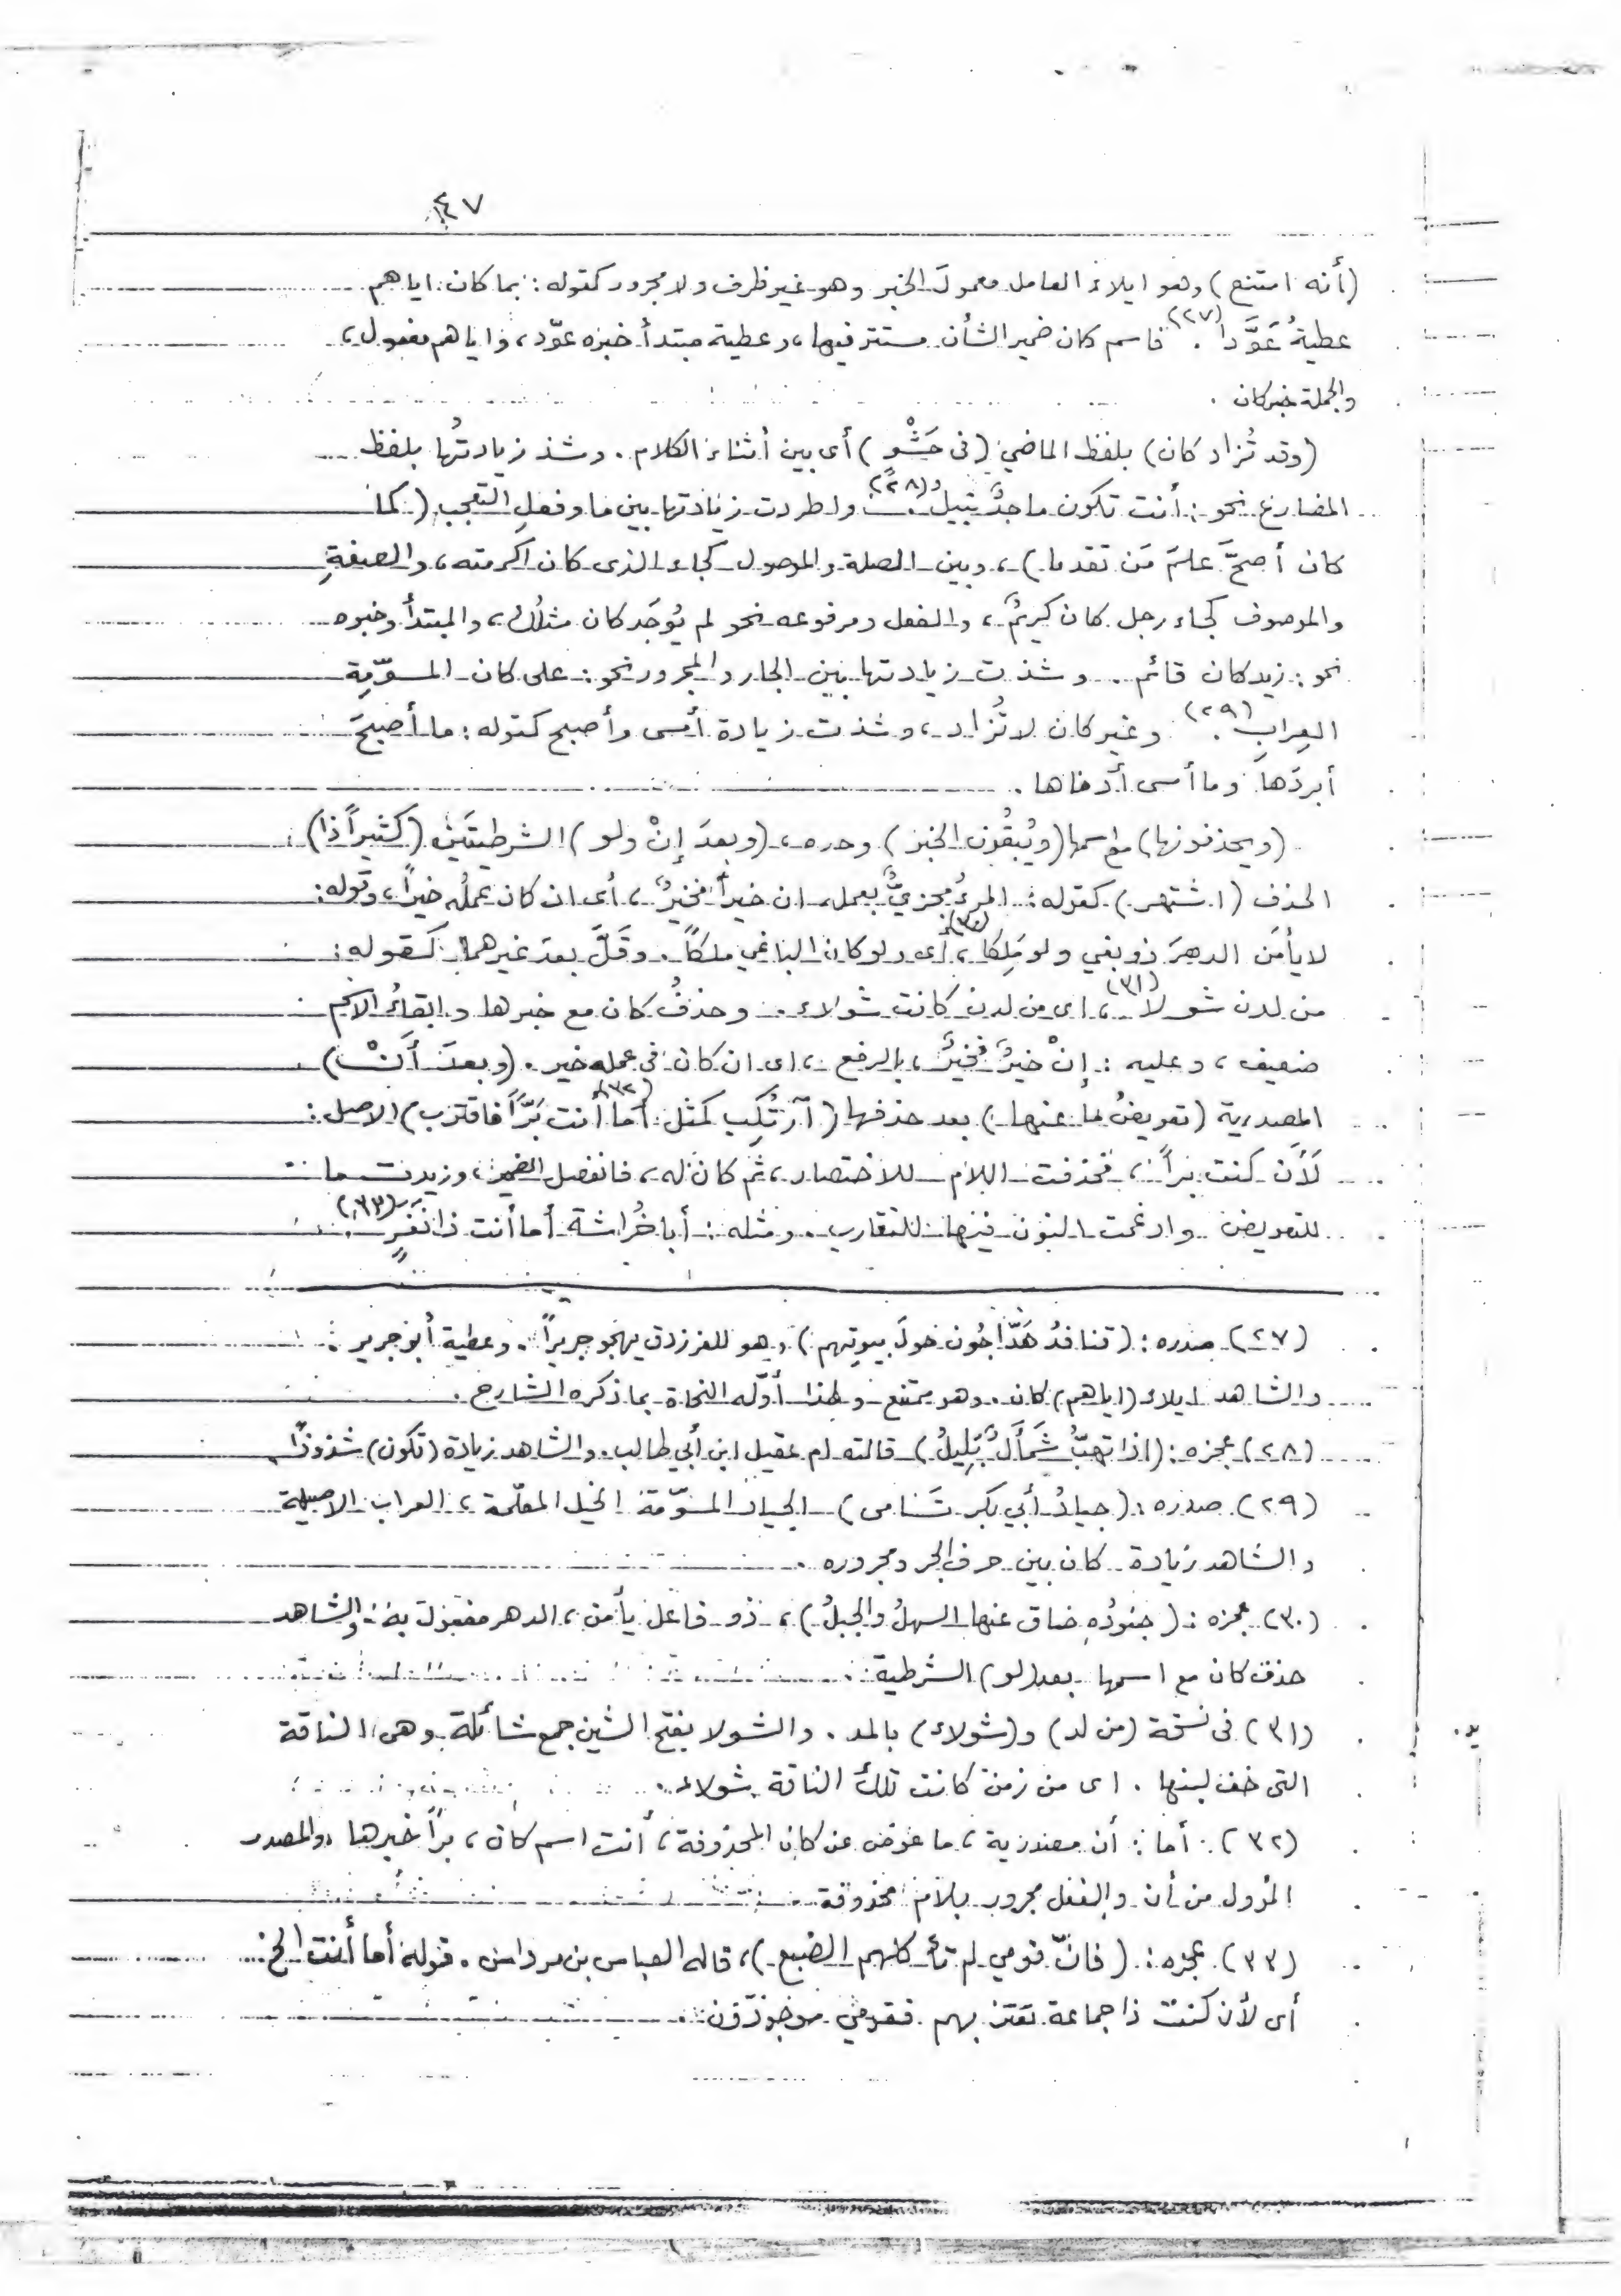 ٤٧
(أنه امتنع) وهو ايلاء العامل معمولَ الخبر وهو غير ظرف ولا مجرور كقوله: بما كان اياهم
عطيةُ عَوَّدا (٢٧). فاسم كان ضمير الشأن مستتر فيها، وعطية مبتدأ خبره عوّد، واياهم مفعول،
والجملة خبر كان .
(وقد تُزاد كان) بلفظ الماضي (في حَشْوٍ) أى بين أثناء الكلام. وشذ زيادتُها بلفظ
المضارع نحو: أنت تكون ماجدٌ نبيلُ (٢٨). واطردت زيادتها بين ما وفعلِ التعجب (كما
كان أصحَّ علمَ مَن تقدما)، وبين الصلة والموصول كجاء الذى كان اكرمته، والصفةِ
والموصوف كجاء رجل كان كريمٌ، والفعل ومرفوعه نحو لم يُوجَد كان مثلُك، والمبتدأ وخبره
نحو: زيد كان قائم. وشذت زيادتها بين الجار والمجرور نحو: على كان المسوّمةِ
العِرابِ (٢٩). وغير كان لا تُزاد، وشذت زيادة أمسى وأصبح كقوله: ما أصبحَ
أبردَها وما أمسى أدفاها .
(ويحذفونها) مع اسمها (ويُبقُون الخبر) وحده، (وبعدَ إنْ ولو) الشرطيتَين (كثيراً ذا)
الحذف (اشتهر) كقوله: المرءُ مجزيٌّ بعمله ان خيراً فخيرٌ، أى ان كان عملُه خيراً، وقوله:
لا يأمَن الدهرَ ذو بغي ولو مَلِكا (٣٠)، أى ولو كان الباغي ملكاً. وقَلَّ بعدَ غيرهما كقوله:
من لدن شولا (٣١)، اى من لدن كانت شولاء. وحذفُ كان مع خبرها وابقاءُ الاسم
ضعيف، وعليه: إنْ خيرٌ فخيرٌ، بالرفع، اى ان كان فى عمله خير. (وبعدَ أَنْ)
المصدرية (تعويضُ ما عنها) بعد حذفها (آرتُكِب كمثل أما أنت بَرّاً فاقترب (٣٢)) الاصل:
لَأَن كنت براً، فحذفت اللام للاختصار، ثم كان له، فانفصل الضمير، وزيدت ما
للتعويض وادغمت النون فيها للتقارب. ومثله: أبا خُراشة أما أنت ذا نَفَرٍ (٣٣).
(٢٧) صدره: (قنافذُ هَدّاجُون حولَ بيوتِهم)، هو للفرزدق يهجو جريراً. وعطية أبو جرير.
والشاهد ايلاء (اياهم) كان. وهو ممتنع ولهذا أوّله النحاة بما ذكره الشارح.
(٢٨) عجزه: (اذا تهبُّ شَمأَلٌ بَلِيلُ) قالته ام عقيل ابن أبي طالب. والشاهد زيادة (تكون) شذوذاً
(٢٩) صدره: (جيادُ أبي بكر تَسَامى) الجياد المسوّمة الخيل المعلّمة، العراب الاصيلة
والشاهد زيادة كان بين حرف الجر ومجروره .
(٣٠) عجزه: (جنودُه ضاق عنها السهلُ والجبلُ)، ذو فاعل يأمن، الدهر مفعول به، والشاهد
حذف كان مع اسمها بعد (لو) الشرطية .
(٣١) فى نسخة (من لد) و(شولاء) بالمد. والشولا بفتح الشين جمع شائلة وهى الناقة
التى خف لبنها. اى من زمن كانت تلك الناقة شولاء.
(٣٢). أما: أن مصدرية، ما عوض عن كان المحذوفة، أنت اسم كان، براً خبرها، والمصدر
المؤول من أن والفعل مجرور بلام محذوفة
(٣٣). عجزه: (فانّ قومي لم تأكلهم الضبع)، قاله العباس بن مرداس. قوله أما أنت الخ:
أى لأن كنت ذا جماعة تعتز بهم فقومي موجودون.